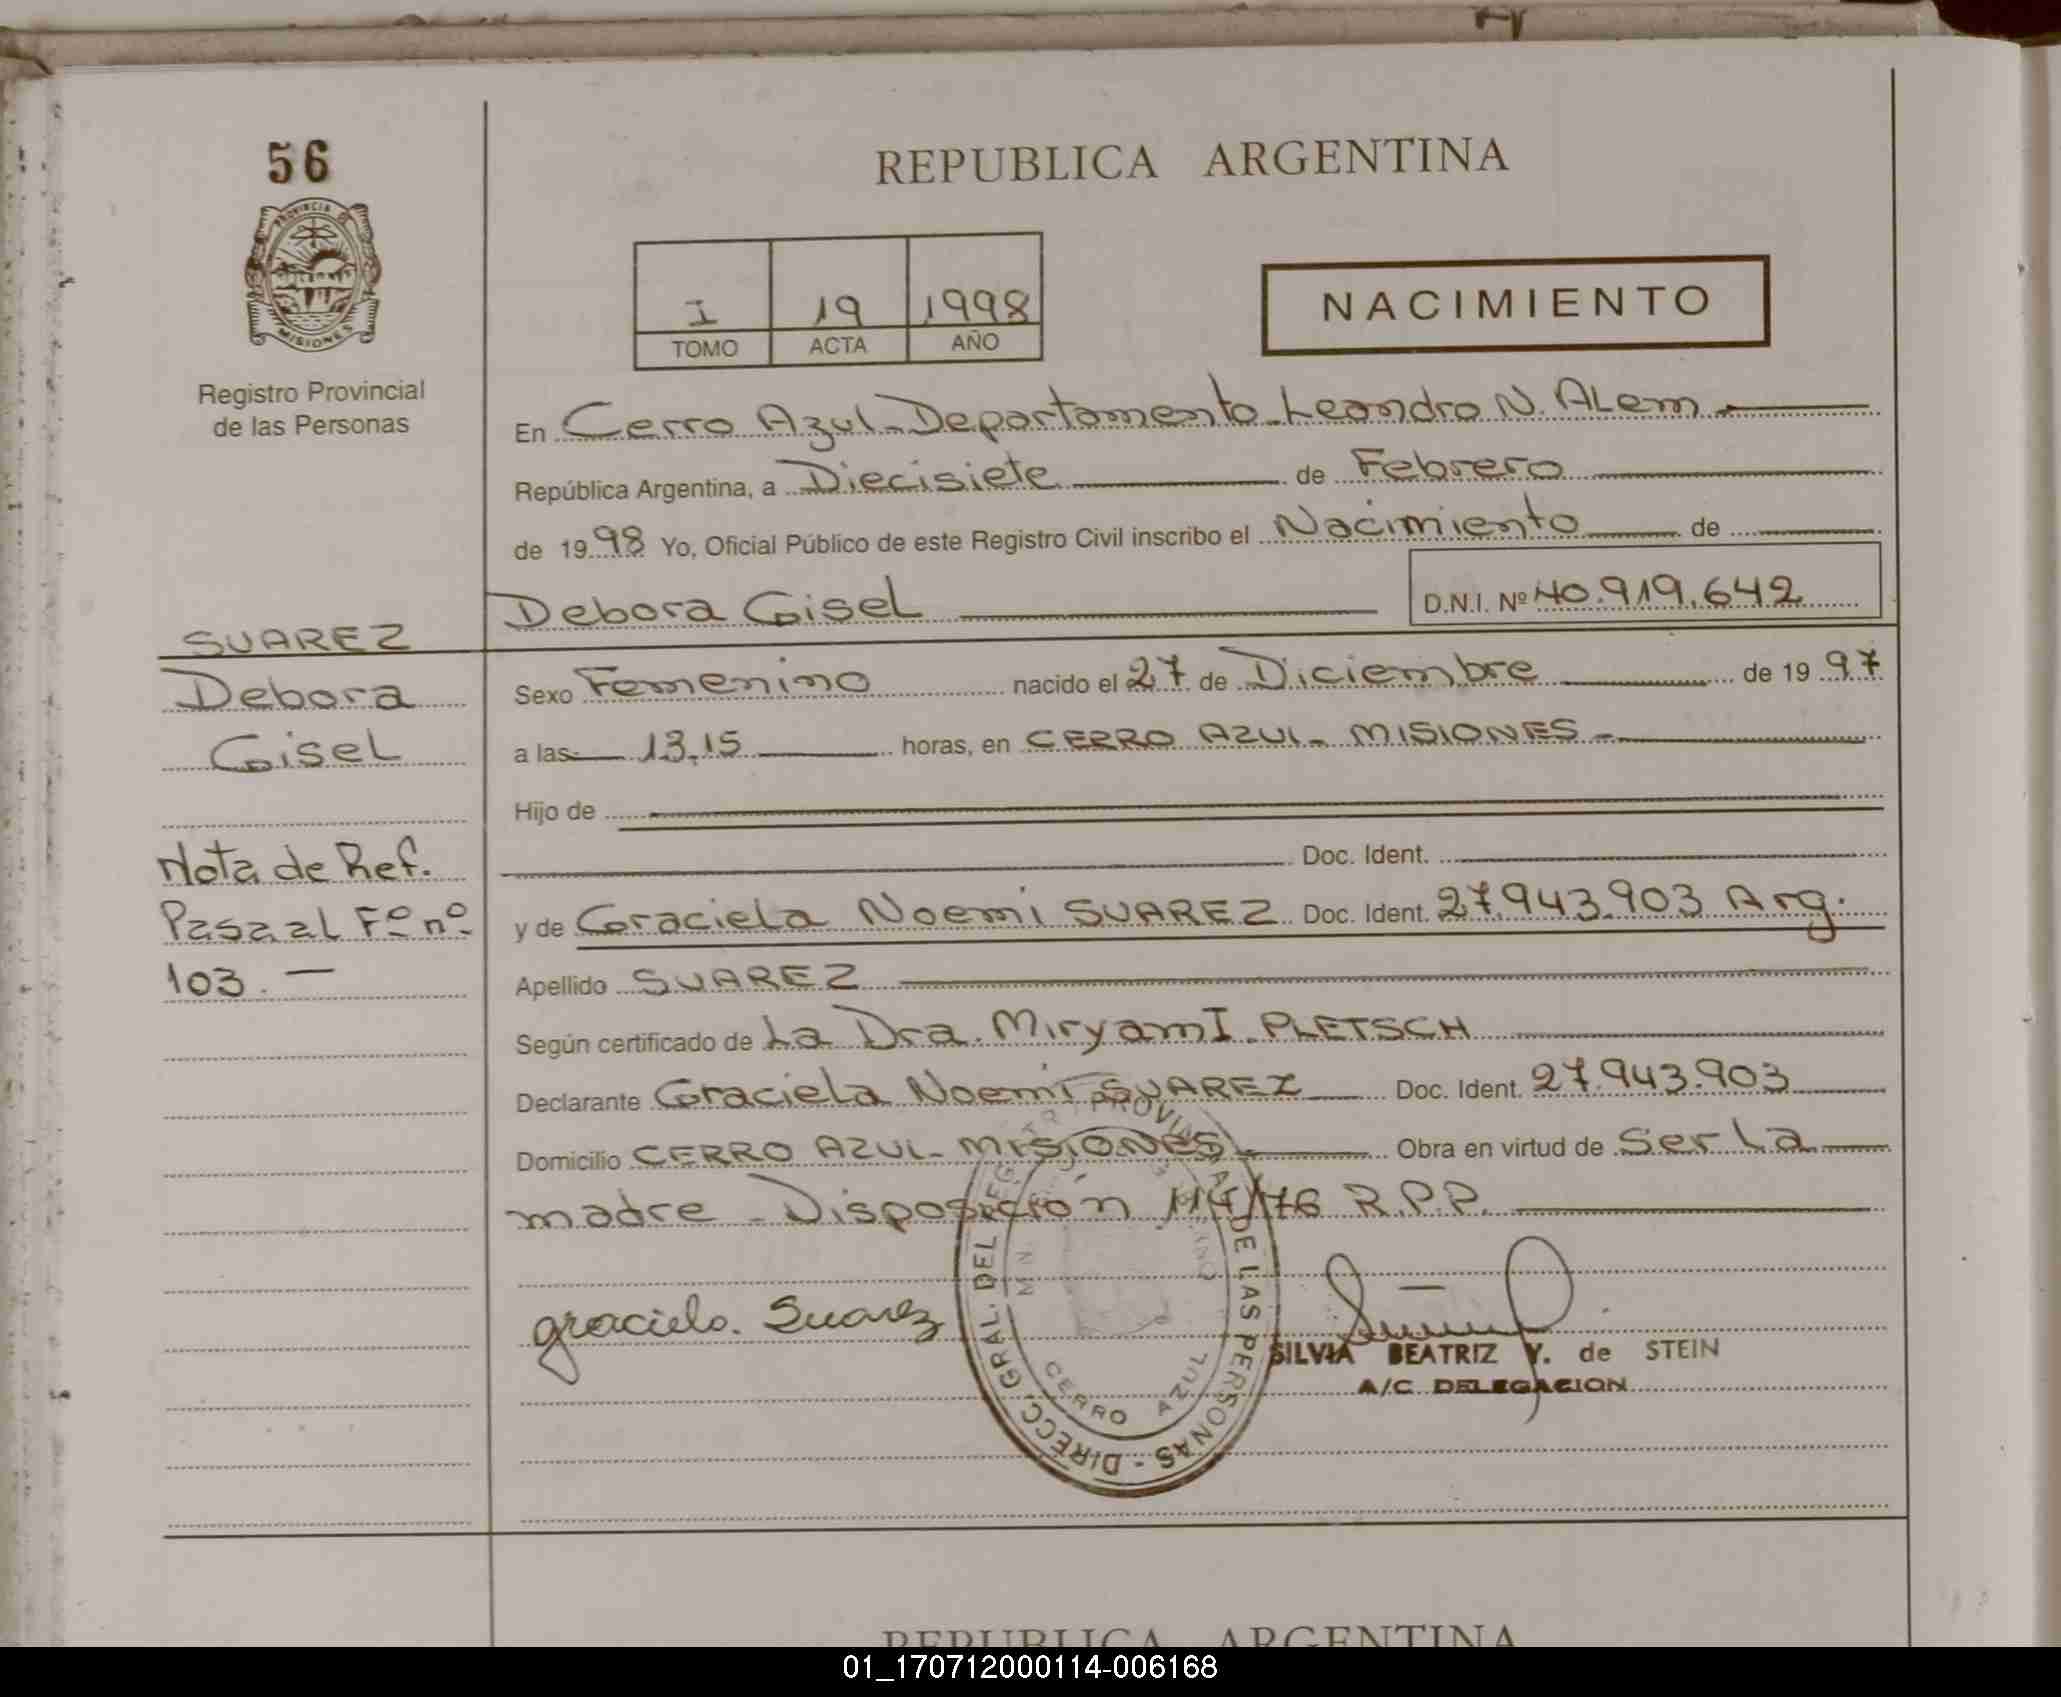 56
PROVINCIA DE
MISIONES
Registro Provincial
de las Personas
REPUBLICA ARGENTINA
I 19 1998
TOMO ACTA AÑO
NACIMIENTO
En Cerro Azul - Departamento Leandro N. ALem
República Argentina, a Diecisiete de Febrero
de 1998 Yo, Oficial Público de este Registro Civil inscribo el Nacimiento de
Debora Gisel D.N.I. Nº 40.919.642
SUAREZ
Debora
Gisel
Nota de Ref.
Pasa al Fº nº
103. —
Sexo Femenino nacido el 27 de Diciembre de 1997
a las 13,15 horas, en CERRO AZUL - MISIONES -
Hijo de
Doc. Ident.
y de Graciela Noemi SUAREZ Doc. Ident. 27.943.903 Arg.
Apellido SUAREZ
Según certificado de La Dra. Miryam I. PLETSCH
Declarante Graciela Noemi SUAREZ Doc. Ident. 27.943.903
Domicilio CERRO AZUL - MISIONES - Obra en virtud de Ser La
madre - Disposición 114/76 R.P.P.
graciela. Suarez
DIRECC. GRAL. DEL REG. PROVINCIAL DE LAS PERSONAS -
CERRO AZUL
SILVIA BEATRIZ Y. de STEIN
A/C DELEGACION
REPUBLICA ARGENTINA
01_170712000114-006168